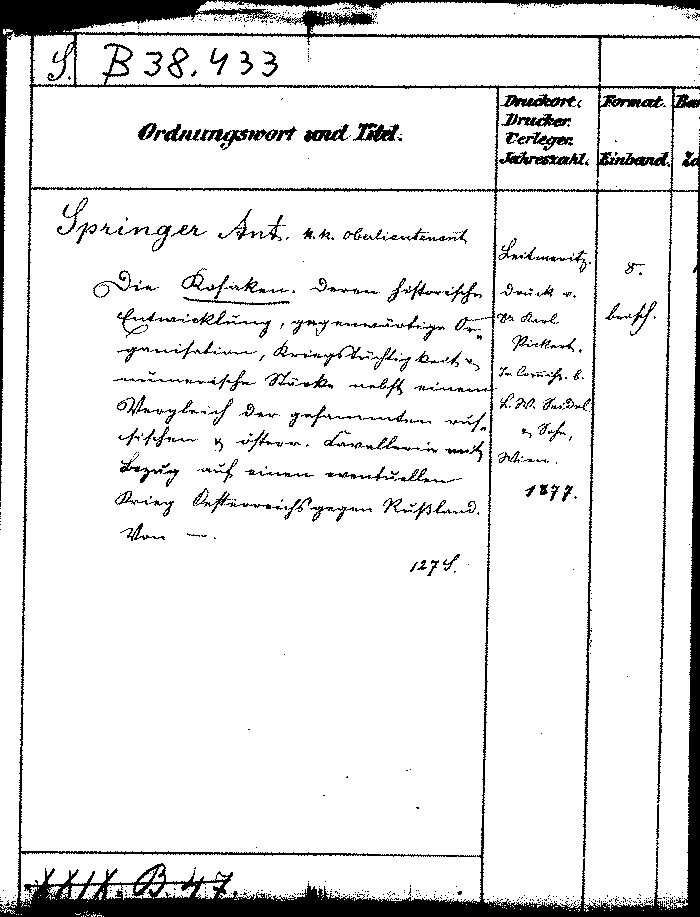 S. B 38.433
Ordnungswort und Titel.
Druckort.
Drucker.
Verleger.
Jahreszahl.
Format.
Einband.
Springer Ant. k.k. Oberlieutenant
Die Kosaken. Deren historische
Entwicklung, gegenwärtige Or-
ganisation, Kriegstüchtigkeit &
numerische Stärke nebst einem
Vergleich der gesammten rus-
sischen & österr. Cavallerie mit
Bezug auf einen eventuellen
Krieg Oesterreichs gegen Rußland.
Von —.
127 S.
Leitmeritz.
Druck v.
Dr. Karl
Pickert.
In Commiss. b.
L. W. Seidel
& Sohn,
Wien.
1877.
8.
brosch.
XXIX. B. 47.